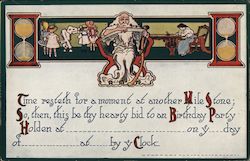 Time resteth for a moment at another Mile Stone;
So, then, this be thy hearty bid to an Birthday Party
Holden at on yͤ day
of at by yͤ Clock.